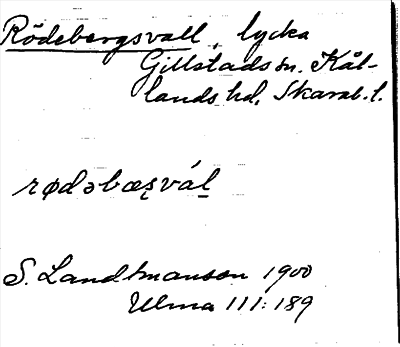 Rödebergsvall, lycka
Gillstads sn. Kål-
lands hd, Skarab. l.
rødəbæʂvál̲
S. Landtmanson 1900
Ulma 111:189